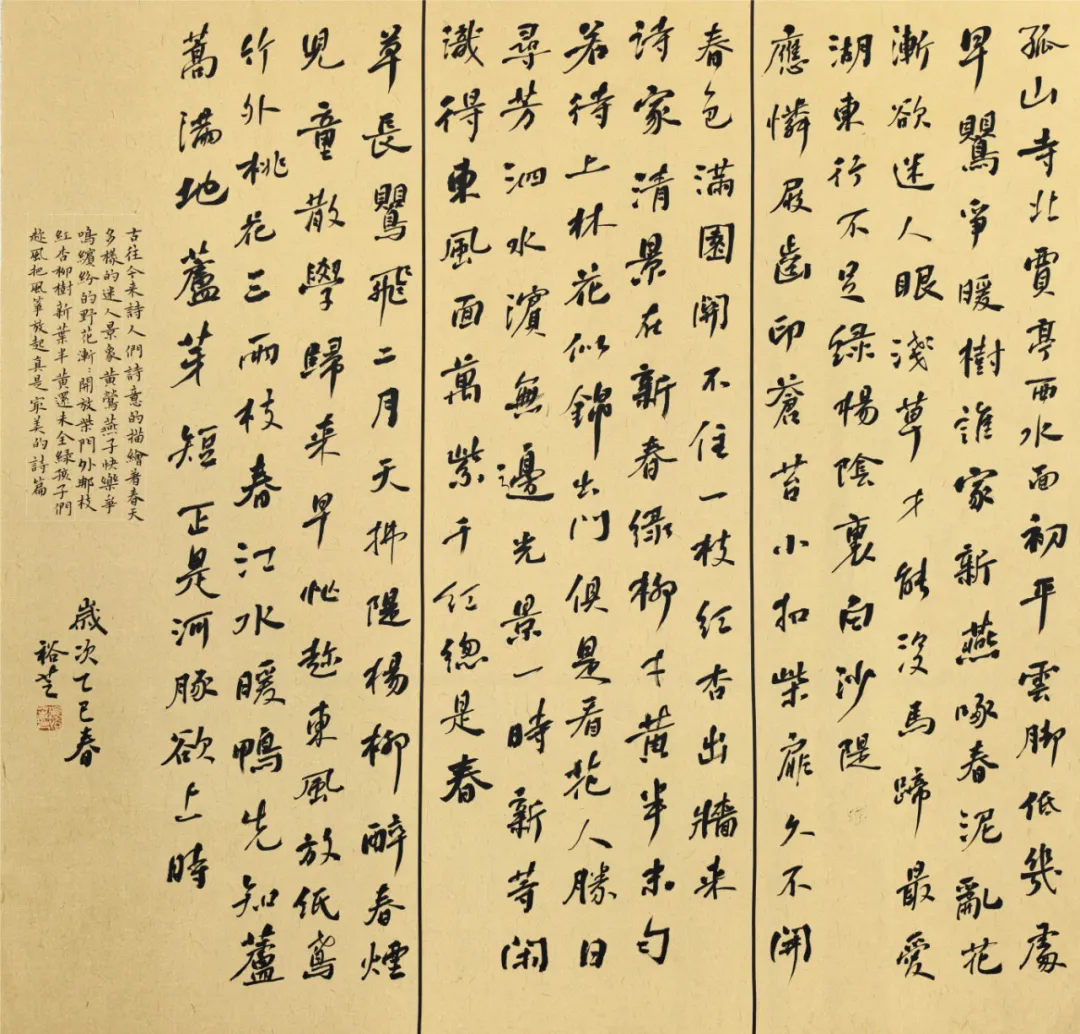 孤山寺北賈亭西水面初平雲脚低幾處
早鸎爭暖樹誰家新燕啄春泥亂花
漸欲迷人眼淺草才能沒馬蹄最愛
湖東行不足綠楊陰裏白沙隄
應憐屐齒印蒼苔小扣柴扉久不開
春色滿園關不住一枝紅杏出牆來
詩家清景在新春綠柳才黃半未勻
若待上林花似錦出門俱是看花人勝日
尋芳泗水濱無邊光景一時新等閑
識得東風面萬紫千紅總是春
草長鸎飛二月天拂隄楊柳醉春煙
兒童散學歸来早忙趁東風放紙鳶
竹外桃花三兩枝春江水暖鴨先知蘆
蒿滿地蘆芽短正是河豚欲上時
古往今来詩人們詩意的描繪著春天
多樣的迷人景象黃鶯燕子快樂爭
鳴繽紛的野花漸:開放柴門外郵枝
紅杏柳樹新葉半黃還未全綠孩子們
趁風把風箏放起真是家美的詩篇
歲次乙巳春
裕芝